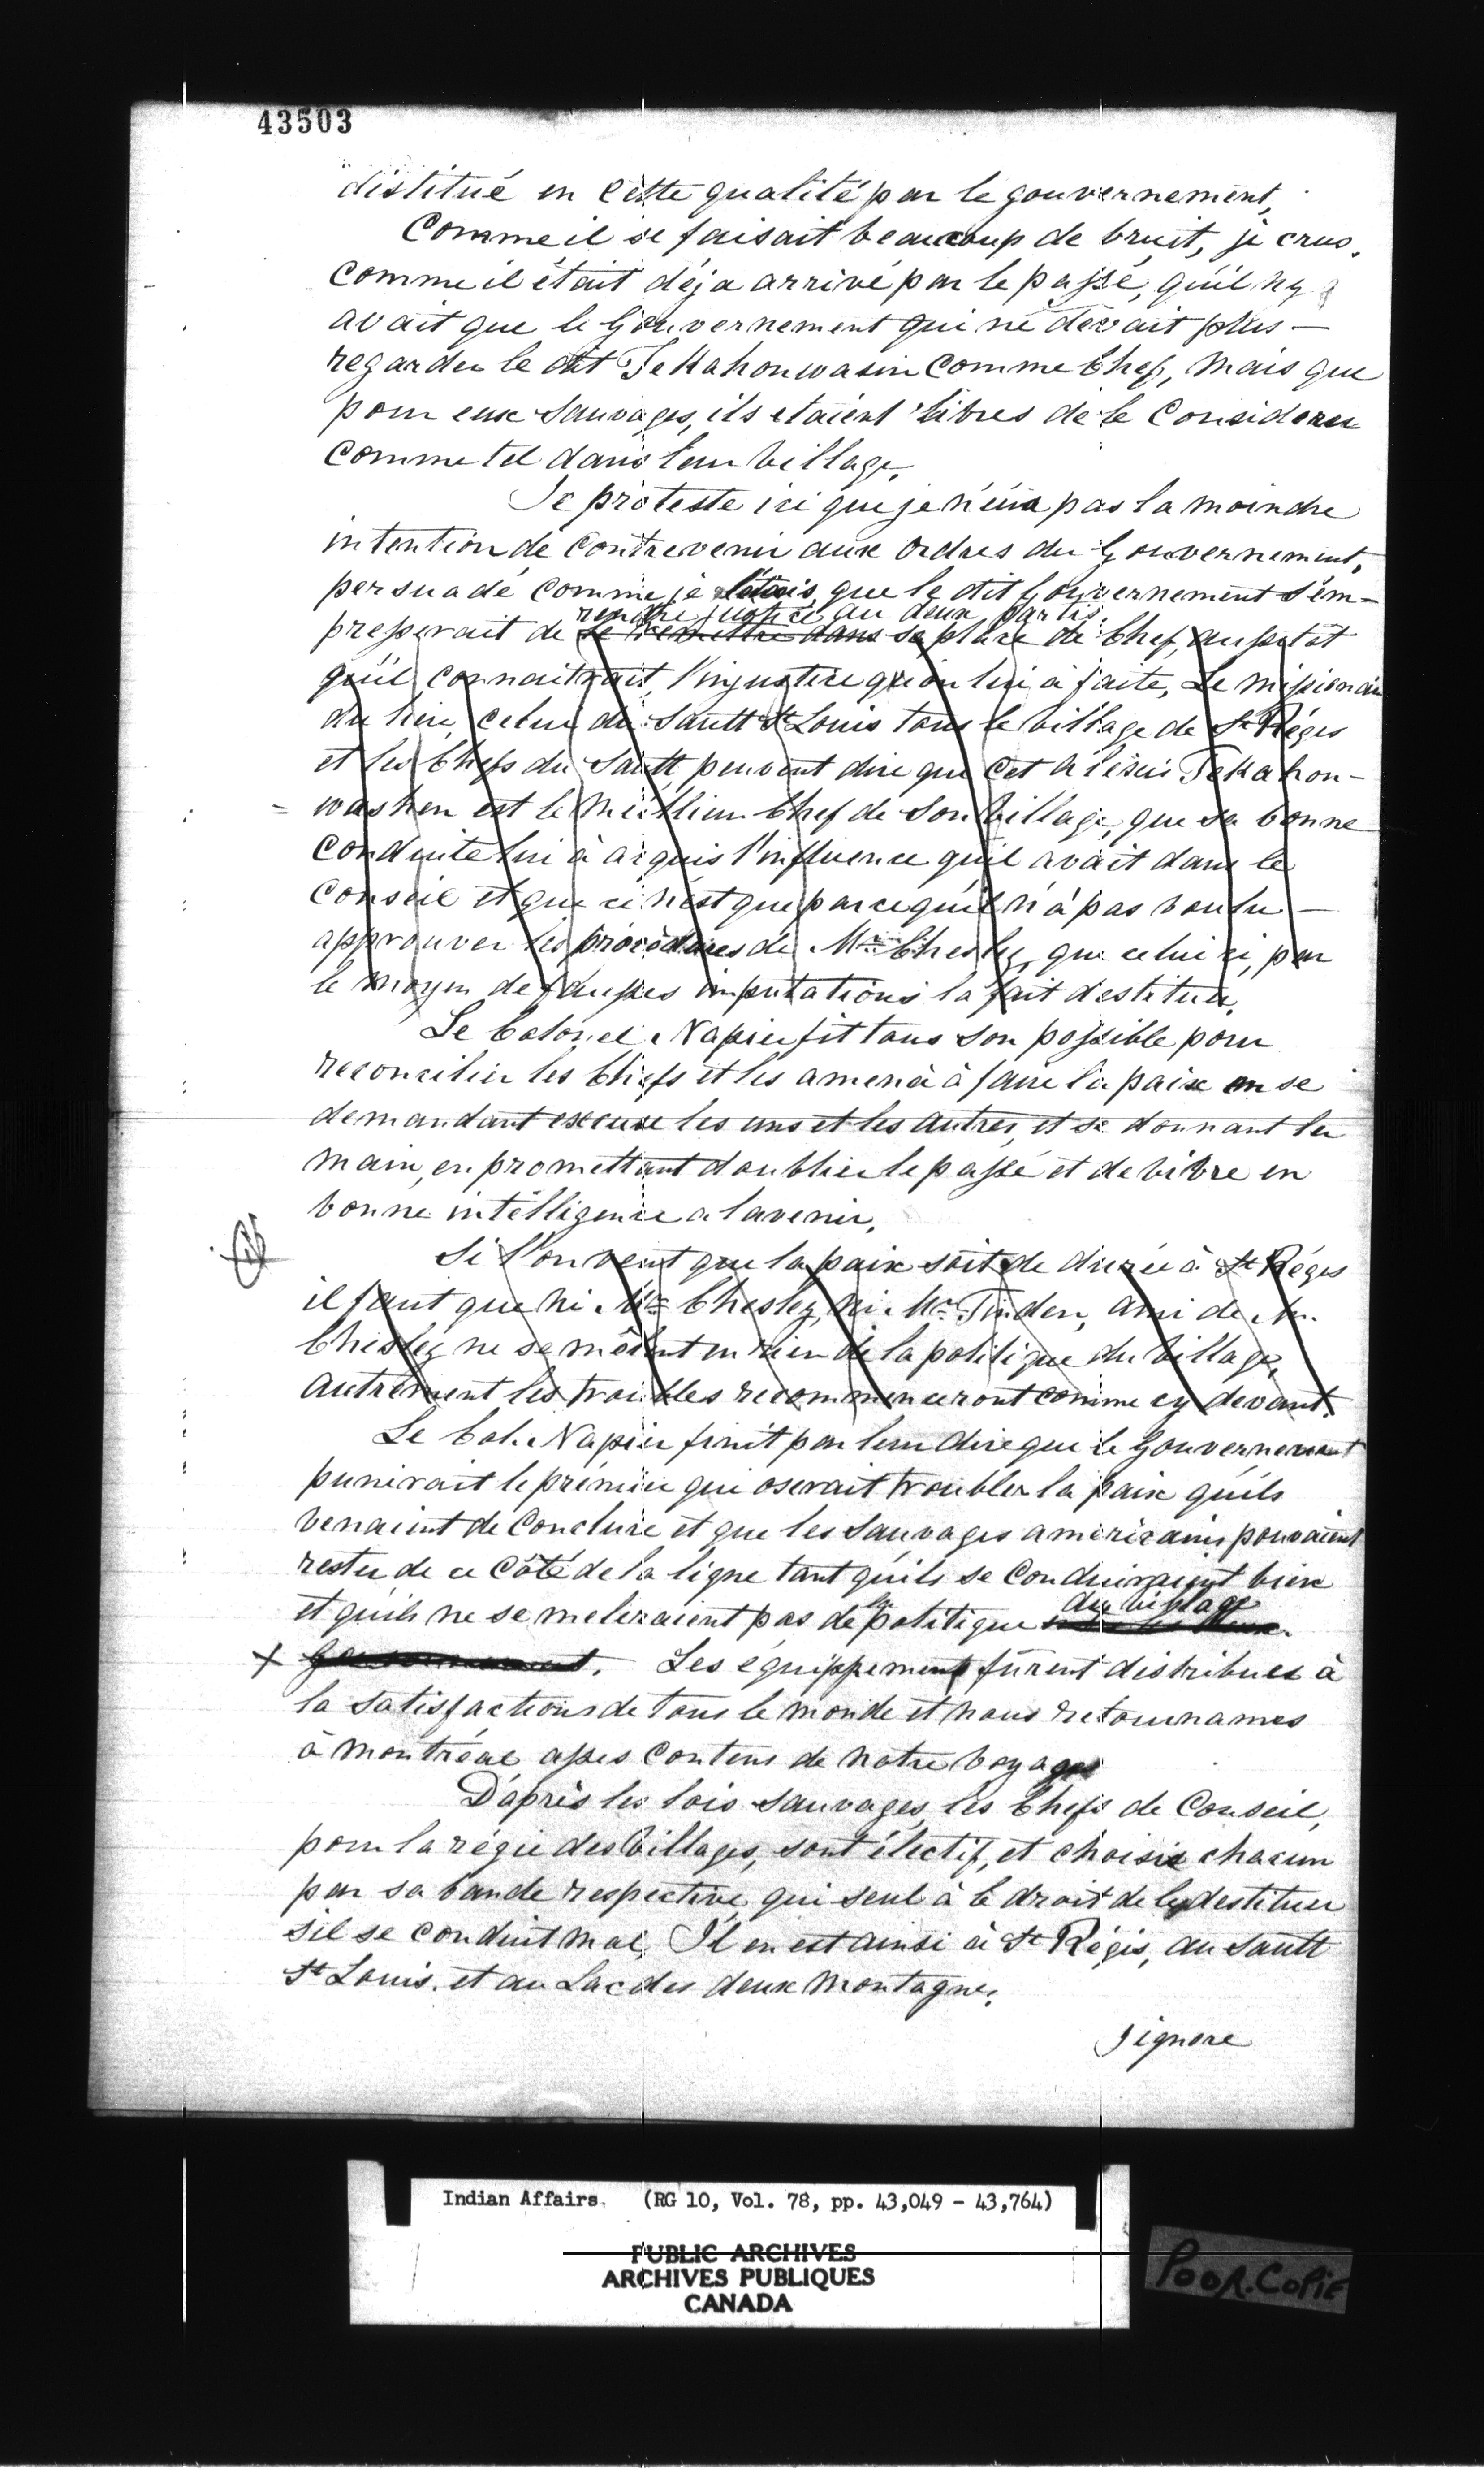 43503
distitué en cette qualité par le gouvernement,
Comme il se faisait beaucoup de bruit, je crus,
comme il était déja arrivé par le passé, qu'il n'y
avait que le Gouvernement qui ne devait plus —
regarder le dit Tekahonwasin comme Chef, mais que
pour eux Sauvages, ils etaient libres de le Considerer
comme tel dans leur village,
Je proteste ici que je n'eus pas la moindre
intention de contrevenir aux ordres du Gouvernement,
persuadé comme je l'étais, que le dit Gouvernement s'em-
rendre justice au deux partis
presserait de le remettre dans sa place de Chef, aussitôt
qu'il connaitrait, l'injustice qu'on lui à faite, Le missionaire
du lieu, celui du Sault St Louis tous le village de St Régis
et les Chefs du Sault peuvent dire que cet Alexis Tekahon-
= washen est le meillieur Chef de Son village, que sa bonne
conduite lui à acquis l'influence qu'il avait dans le
conseil et que ce n'est que parcequ'il n'à pas voulu —
approuver les procédures de Mr Chesley, que celui ci, par
le moyen de fausses imputations la fait destituer,
Le Colonel Napier fit tous son possible pour
reconcilier les Chefs et les amena à faire la paix en se
demandant excuse les uns et les autres, et se donnant la
main, en promettant d'oublier le passé et de vivre en
bonne intélligence a l'avenir,
Si l'on veut que la paix soit de durée à St Régis
il faut que ni Mr Chesley, ni Mr Tinden, ami de Mr.
Chesley ne se mêlent en rien de la politique du village,
autrement les troubles recommenceront comme cy devant.
Le Col. Napier finit par leur dire que le Gouvernement
punirait le prémier qui oserait troubler la paix qu'ils
venaient de Conclure et que les Sauvages américains pouvaient
rester de ce Côté de la ligne tant qu'ils se conduiraient bien
du village
et qu'ils ne se meleraient pas de la politique
x gouvernement. Les équippements fûrent distribués à
la satisfactions de tous le monde et nous retournames
à Montréal asses contens de notre voyage
D'après les lois sauvages, les Chefs de Conseil,
pour la régie des Villages, sont électif, et choisie chacun
par sa bande respective, qui seul à le droit de les destituer
s'il se conduit mal, Il en est ainsi à St Régis, au Sault
St Louis. et au Lac des deux Montagnes.
J'ignore
Indian Affairs. (RG 10, Vol. 78, pp. 43,049 - 43,764)
PUBLIC ARCHIVES
ARCHIVES PUBLIQUES
CANADA
POOR.COPIE